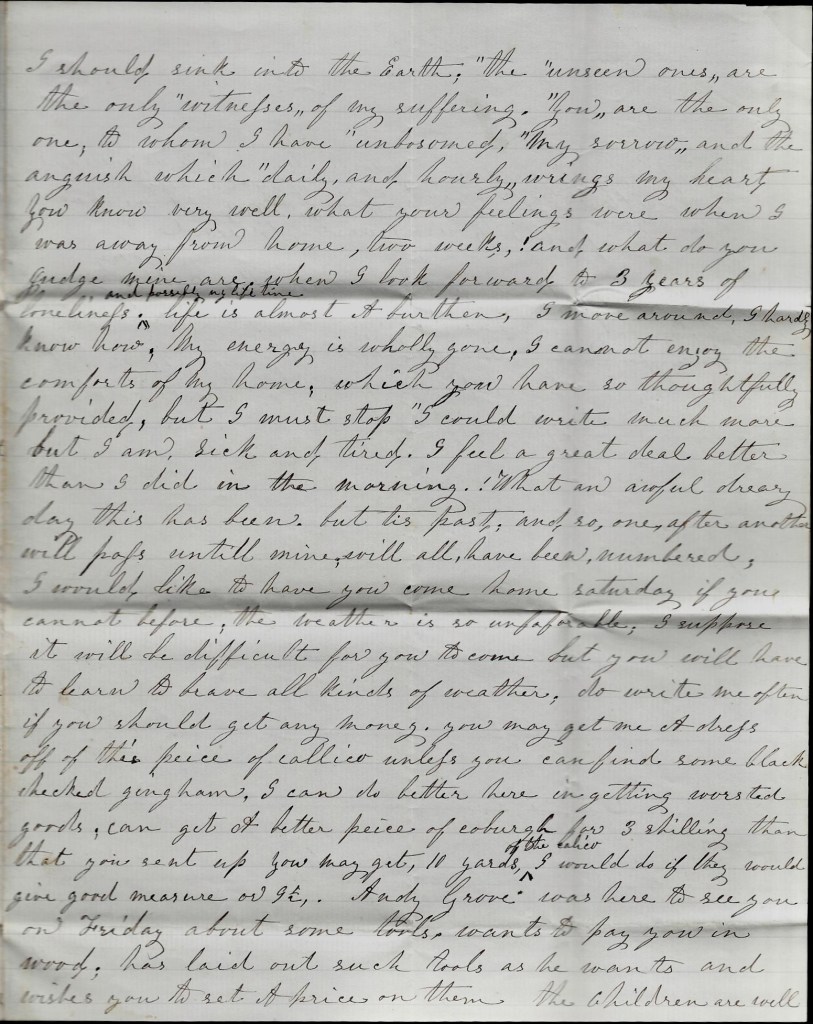 I should, sink into the Earth; "the "unseen ones,, are
the only "witnesses,, of my suffering. "You,, are the only
one, to whom I have "unbosomed, "My sorrow,, and the
anguish which "daily, and, hourly,, wrings my heart,
You know very well, what your feelings were when I
was away from home, two weeks,! and, what do you
gudge mine are, when I look forward, to 3 years of
and possibly my life time
loneliness. life is almost A burthen, I move around, I hardly
know how, My energy is wholly gone, I cannot enjoy the
comforts of My home, which you have so thoughtfully
provided, but I must stop "I could write much more
but I am, sick and, tired. I feel a great deal better
than I did in the morning.! What an awful dreary
day this has been. but tis past, and, so, one, after another
will pass untill mine, will all, have been, numbered,
I would, like to have you come home saturday if you
cannot before, the weather is so unfaforable, I suppose
it will be difficult for you to come but you will have
to learn to brave all kinds of weather, do write me often
if you should get any money. you may get me A dress
off of this peice of callico unless you can find some black
checked gingham, I can do better here in getting worsted
goods, can get A better peice of coburgh for 3 shilling than
of the calico
that you sent up you may get, 10 yards, I would do if they would
give good measure or 9½,. Andy Grove was here to see you
on Friday about some tools. wants to pay you in
wood, has laid out such tools as he wants and
wishes you to set A price on them the children are well